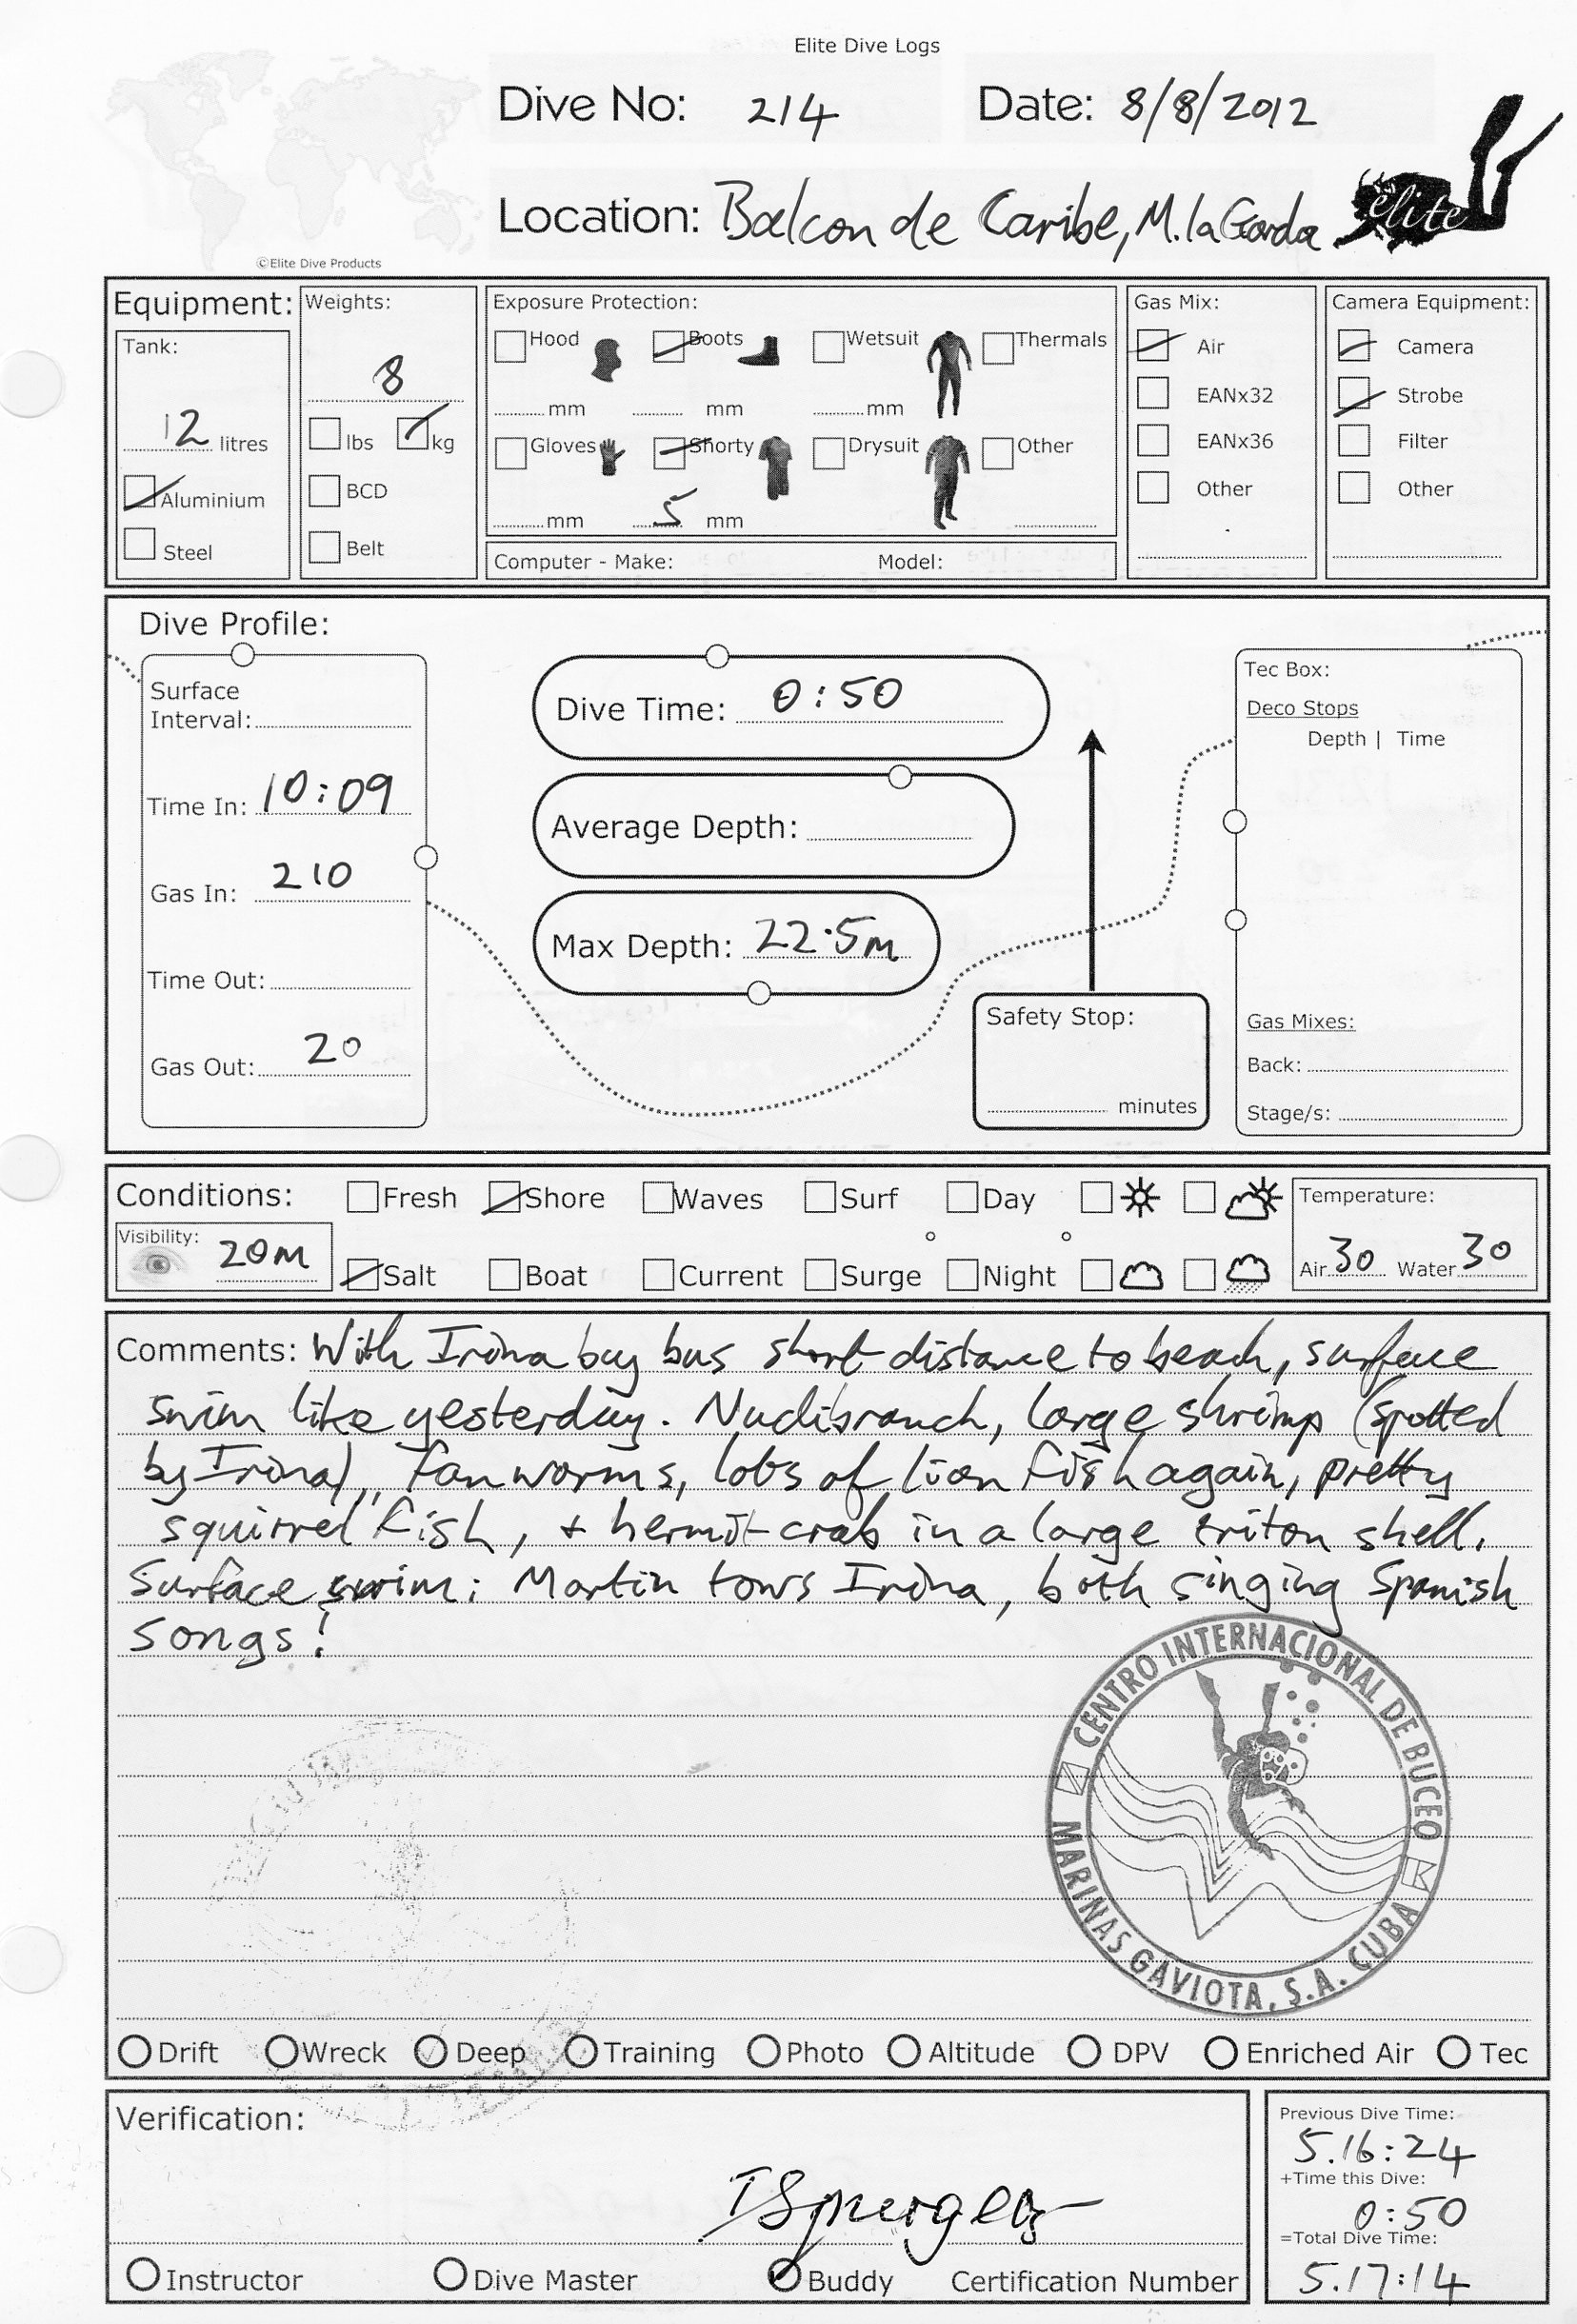 Elite Dive Logs
Dive No: 214 Date: 8/8/2012
Location: Balcon de Caribe, M. la Gorda
elite
©Elite Dive Products
Equipment:
Tank:
12 litres
Aluminium
Steel
Weights:
8
lbs kg
BCD
Belt
Exposure Protection:
Hood Boots Wetsuit Thermals
mm mm mm
Gloves Shorty Drysuit Other
mm 5 mm
Computer - Make: Model:
Gas Mix:
Air
EANx32
EANx36
Other
Camera Equipment:
Camera
Strobe
Filter
Other
Dive Profile:
Surface
Interval:
Time In: 10:09
Gas In: 210
Time Out:
Gas Out: 20
Dive Time: 0:50
Average Depth:
Max Depth: 22.5m
Safety Stop:
minutes
Tec Box:
Deco Stops
Depth | Time
Gas Mixes:
Back:
Stage/s:
Conditions: Fresh Shore Waves Surf Day
Visibility: 20m
Salt Boat Current Surge Night
Temperature:
Air 30 Water 30
Comments: With Irina by bus short distance to beach, surface
swim like yesterday. Nudibranch, large shrimp (spotted
by Irina), fan worms, lots of lion fish again, pretty
squirrel fish, + hermit crab in a large triton shell.
Surface swim: Martin tows Irina, both singing Spanish
songs!
CENTRO INTERNACIONAL DE BUCEO
MARINAS GAVIOTA, S.A. CUBA
Drift Wreck Deep Training Photo Altitude DPV Enriched Air Tec
Verification:
Instructor Dive Master Buddy Certification Number
Previous Dive Time:
5.16:24
+Time this Dive:
0:50
=Total Dive Time:
5.17:14